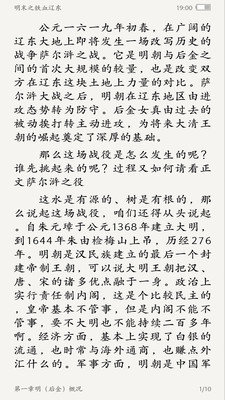 明末之铁血辽东 19:00
公元一六一九年初春，在广阔的
辽东大地上即将发生一场改写历史的
战争萨尔浒之战。它是明朝与后金之
间的首次大规模的较量，也是改变双
方在辽东这块土地上力量的对比。萨
尔浒大战之后，明朝在辽东地区由进
攻态势转为防守。后金女真由过去的
被动挨打转主动进攻，为将来大清王
朝的崛起奠定了深厚的基础。
那么这场战役是怎么发生的呢？
谁先挑起来的呢？过程又如何请看正
文萨尔浒之役
这水是有源的、树是有根的，那
么说起这场战役，咱们还得从头说
起。自朱元璋于公元1368年建立大明，
到1644年朱由检梅山上吊，历经276
年。明朝是汉民族建立的最后一个封
建帝制王朝，可以说大明王朝把汉、
唐、宋的诸多优点融于一身。政治上
实行责任制内阁，这是个比较民主的
，皇帝基本不管事，但是内阁不能不
管事，要不大明也不能持续二百多年
啊。经济方面，基本上实现了白银的
流通，也时常与海外通商，也赚点外
汇什么的。军事方面，明朝是中国军
第一章明（后金）概况 1/10